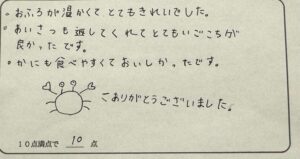 ・おふろが温かくてとてもきれいでした。
・あいさつも返してくれてとてもいごこちが
良かったです。
・かにも食べやすくておいしかったです。
ありがとうございました。
10点満点で 10 点